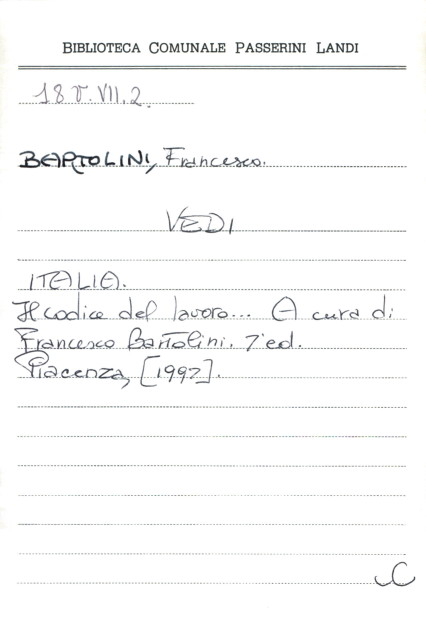 BIBLIOTECA COMUNALE PASSERINI LANDI
18 V. VII. 2.
BARTOLINI, Francesco.
VEDI
ITALIA.
Il codice del lavoro... A cura di
Francesco Bartolini. 7ª ed.
Piacenza, [1997].